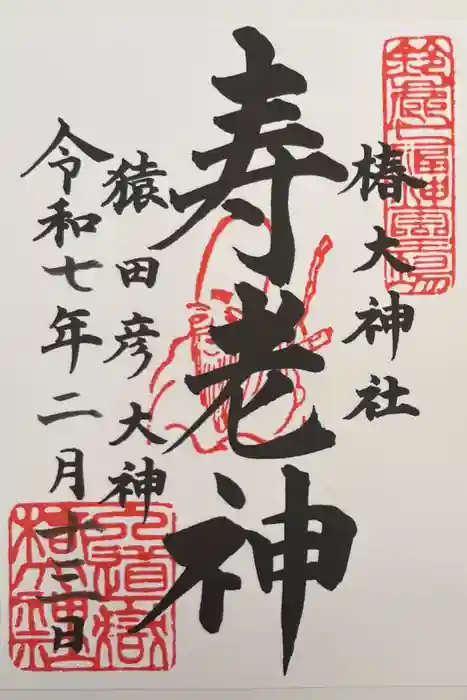 鈴鹿七福神霊場
椿大神社
寿老神
猿田彦大神
令和七年二月十三日